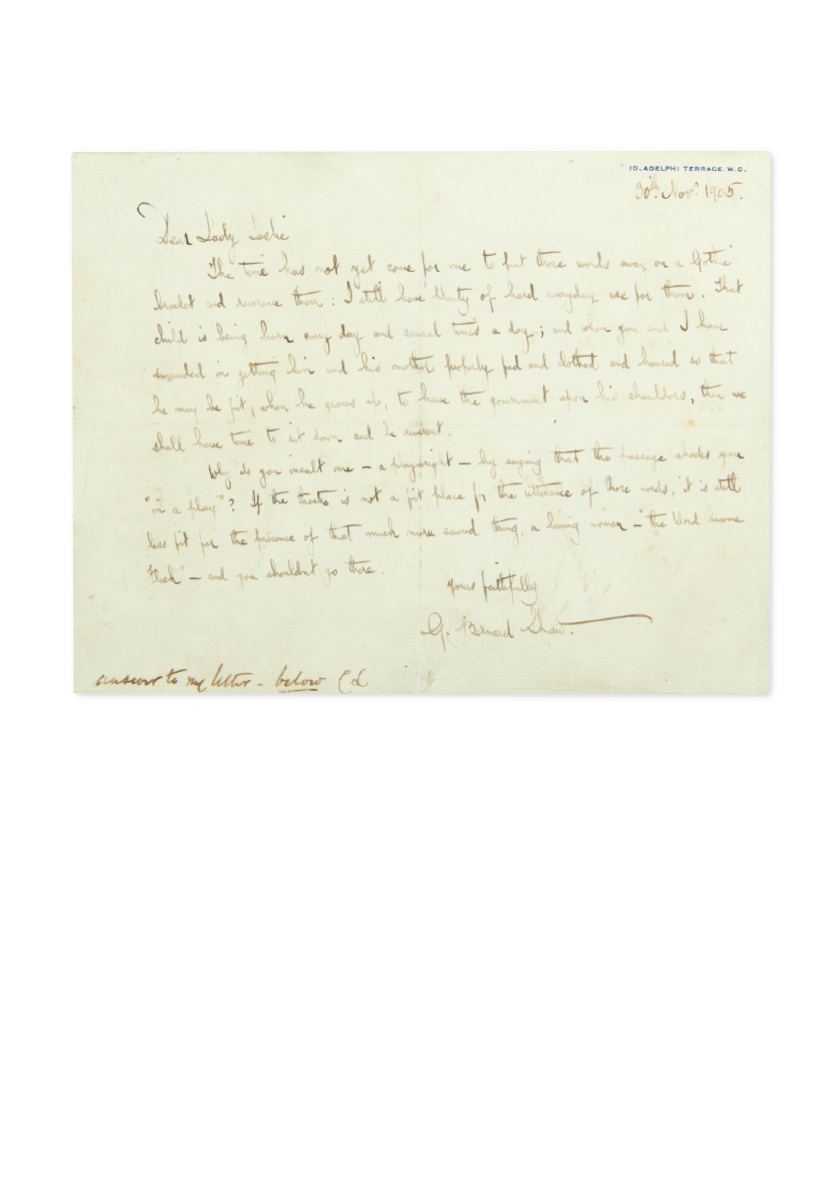 10, ADELPHI TERRACE. W.C.
30th Novr. 1905.
Dear Lady Leslie
The time has not yet come for me to put those words away on a Gothic
bracket and reverence them: I still have plenty of hard everyday use for them. That
child is being born every day and several times a day; and when you and I have
succeeded in getting him and his mother properly fed and clothed and housed so that
he may be fit, when he grows up, to have the government upon his shoulders, then we
shall have time to sit down and be reverent.
Why do you insult me – a playwright – by saying that the passage shocks you
"in a play"? If the theatre is not a fit place for the utterance of those words, it is still
less fit for the presence of that much more sacred thing, a living woman – "the Word become
flesh" – and you shouldnt go there.
yours faithfully
G. Bernard Shaw.
answer to my letter - below CL